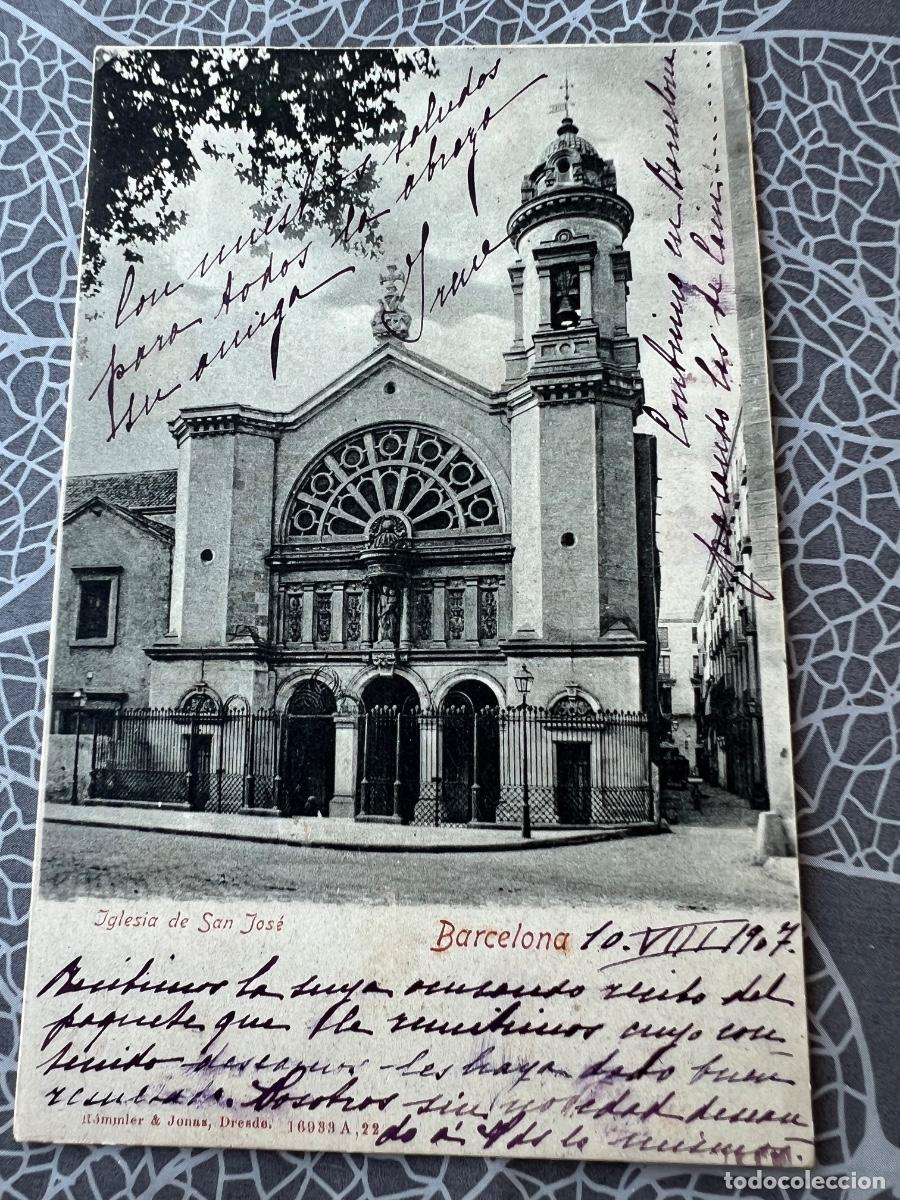 Con nuestros saludos
para todos la abraza
su amiga Irene
Continua en Barcelona
pasando los de
Iglesia de San José
Barcelona 10.VIII 1907.
Recibimos la suya acusando recibo del
paquete que le remitimos cuyo con
tenido deseamos les haya dado buen
resultado. Nosotros sin novedad desean
do á Vds lo mismo
Römmler & Jonas, Dresde. 16933 A, 22
todocoleccion